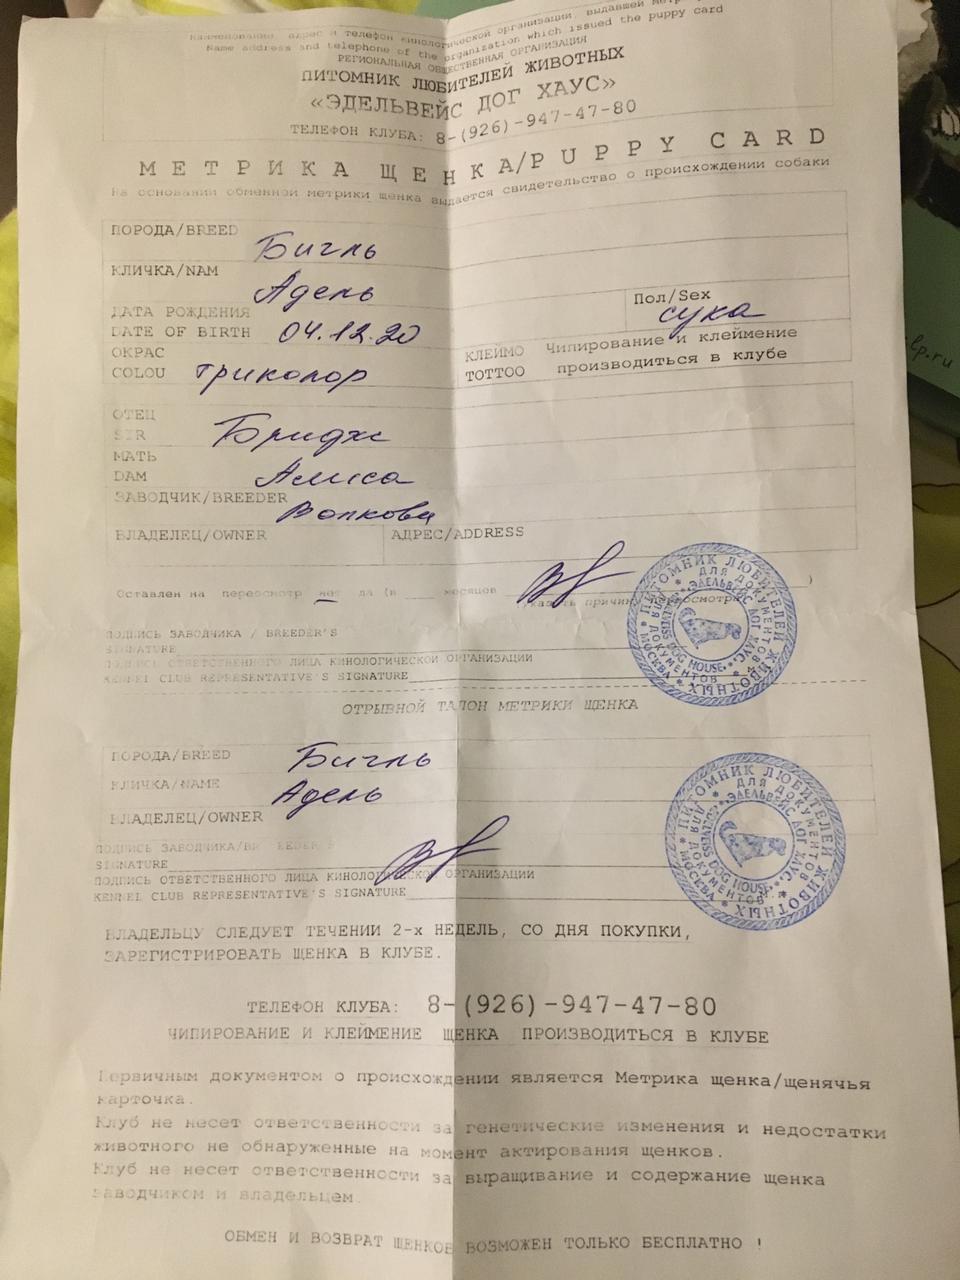 Наименование, адрес и телефон кинологической организации, выдавшей
Name address and telephone of the organization which issued the puppy card
РЕГИОНАЛЬНАЯ ОБЩЕСТВЕННАЯ ОРГАНИЗАЦИЯ
ПИТОМНИК ЛЮБИТЕЛЕЙ ЖИВОТНЫХ
«ЭДЕЛЬВЕЙС ДОГ ХАУС»
ТЕЛЕФОН КЛУБА: 8-(926)-947-47-80
МЕТРИКА ЩЕНКА/PUPPY CARD
На основании обменной метрики щенка выдается свидетельство о происхождении собаки
ПОРОДА/BREED Бигль
КЛИЧКА/NAM Адель
Пол/Sex сука
ДАТА РОЖДЕНИЯ
DATE OF BIRTH 04.12.20
ОКРАС
COLOU триколор
КЛЕЙМО Чипирование и клеймение
TOTTOO производиться в клубе
ОТЕЦ
SIR Бридж
МАТЬ
DAM Алиса
ЗАВОДЧИК/BREEDER Волкова
ВЛАДЕЛЕЦ/OWNER АДРЕС/ADDRESS
Оставлен на пересмотр нет да (в ___ месяцев указать причину пересмотра )
ПОДПИСЬ ЗАВОДЧИКА / BREEDER'S
SIGNATURE
ПОДПИСЬ ОТВЕТСТВЕННОГО ЛИЦА КИНОЛОГИЧЕСКОЙ ОРГАНИЗАЦИИ
KENNEL CLUB REPRESENTATIVE'S SIGNATURE
ПИТОМНИК ЛЮБИТЕЛЕЙ ЖИВОТНЫХ * МОСКВА *
ДЛЯ ДОКУМЕНТОВ * ДЛЯ ДОКУМЕНТОВ *
"ЭДЕЛЬВЕЙС ДОГ ХАУС" EDELVEISS DOG HOUSE
ОТРЫВНОЙ ТАЛОН МЕТРИКИ ЩЕНКА
ПОРОДА/BREED Бигль
КЛИЧКА/NAME Адель
ВЛАДЕЛЕЦ/OWNER
ПОДПИСЬ ЗАВОДЧИКА/BREEDER'S
SIGNATURE
ПОДПИСЬ ОТВЕТСТВЕННОГО ЛИЦА КИНОЛОГИЧЕСКОЙ ОРГАНИЗАЦИИ
KENNEL CLUB REPRESENTATIVE'S SIGNATURE
ПИТОМНИК ЛЮБИТЕЛЕЙ ЖИВОТНЫХ * МОСКВА *
ДЛЯ ДОКУМЕНТОВ * ДЛЯ ДОКУМЕНТОВ *
"ЭДЕЛЬВЕЙС ДОГ ХАУС" EDELVEISS DOG HOUSE
ВЛАДЕЛЬЦУ СЛЕДУЕТ ТЕЧЕНИИ 2-х НЕДЕЛЬ, СО ДНЯ ПОКУПКИ,
ЗАРЕГИСТРИРОВАТЬ ЩЕНКА В КЛУБЕ.
ТЕЛЕФОН КЛУБА: 8-(926)-947-47-80
ЧИПИРОВАНИЕ И КЛЕЙМЕНИЕ ЩЕНКА ПРОИЗВОДИТЬСЯ В КЛУБЕ
Первичным документом о происхождении является Метрика щенка/щенячья
карточка.
Клуб не несет ответственности за генетические изменения и недостатки
животного не обнаруженные на момент актирования щенков.
Клуб не несет ответственности за выращивание и содержание щенка
заводчиком и владельцем.
ОБМЕН И ВОЗВРАТ ЩЕНКОВ ВОЗМОЖЕН ТОЛЬКО БЕСПЛАТНО !
lp.ru